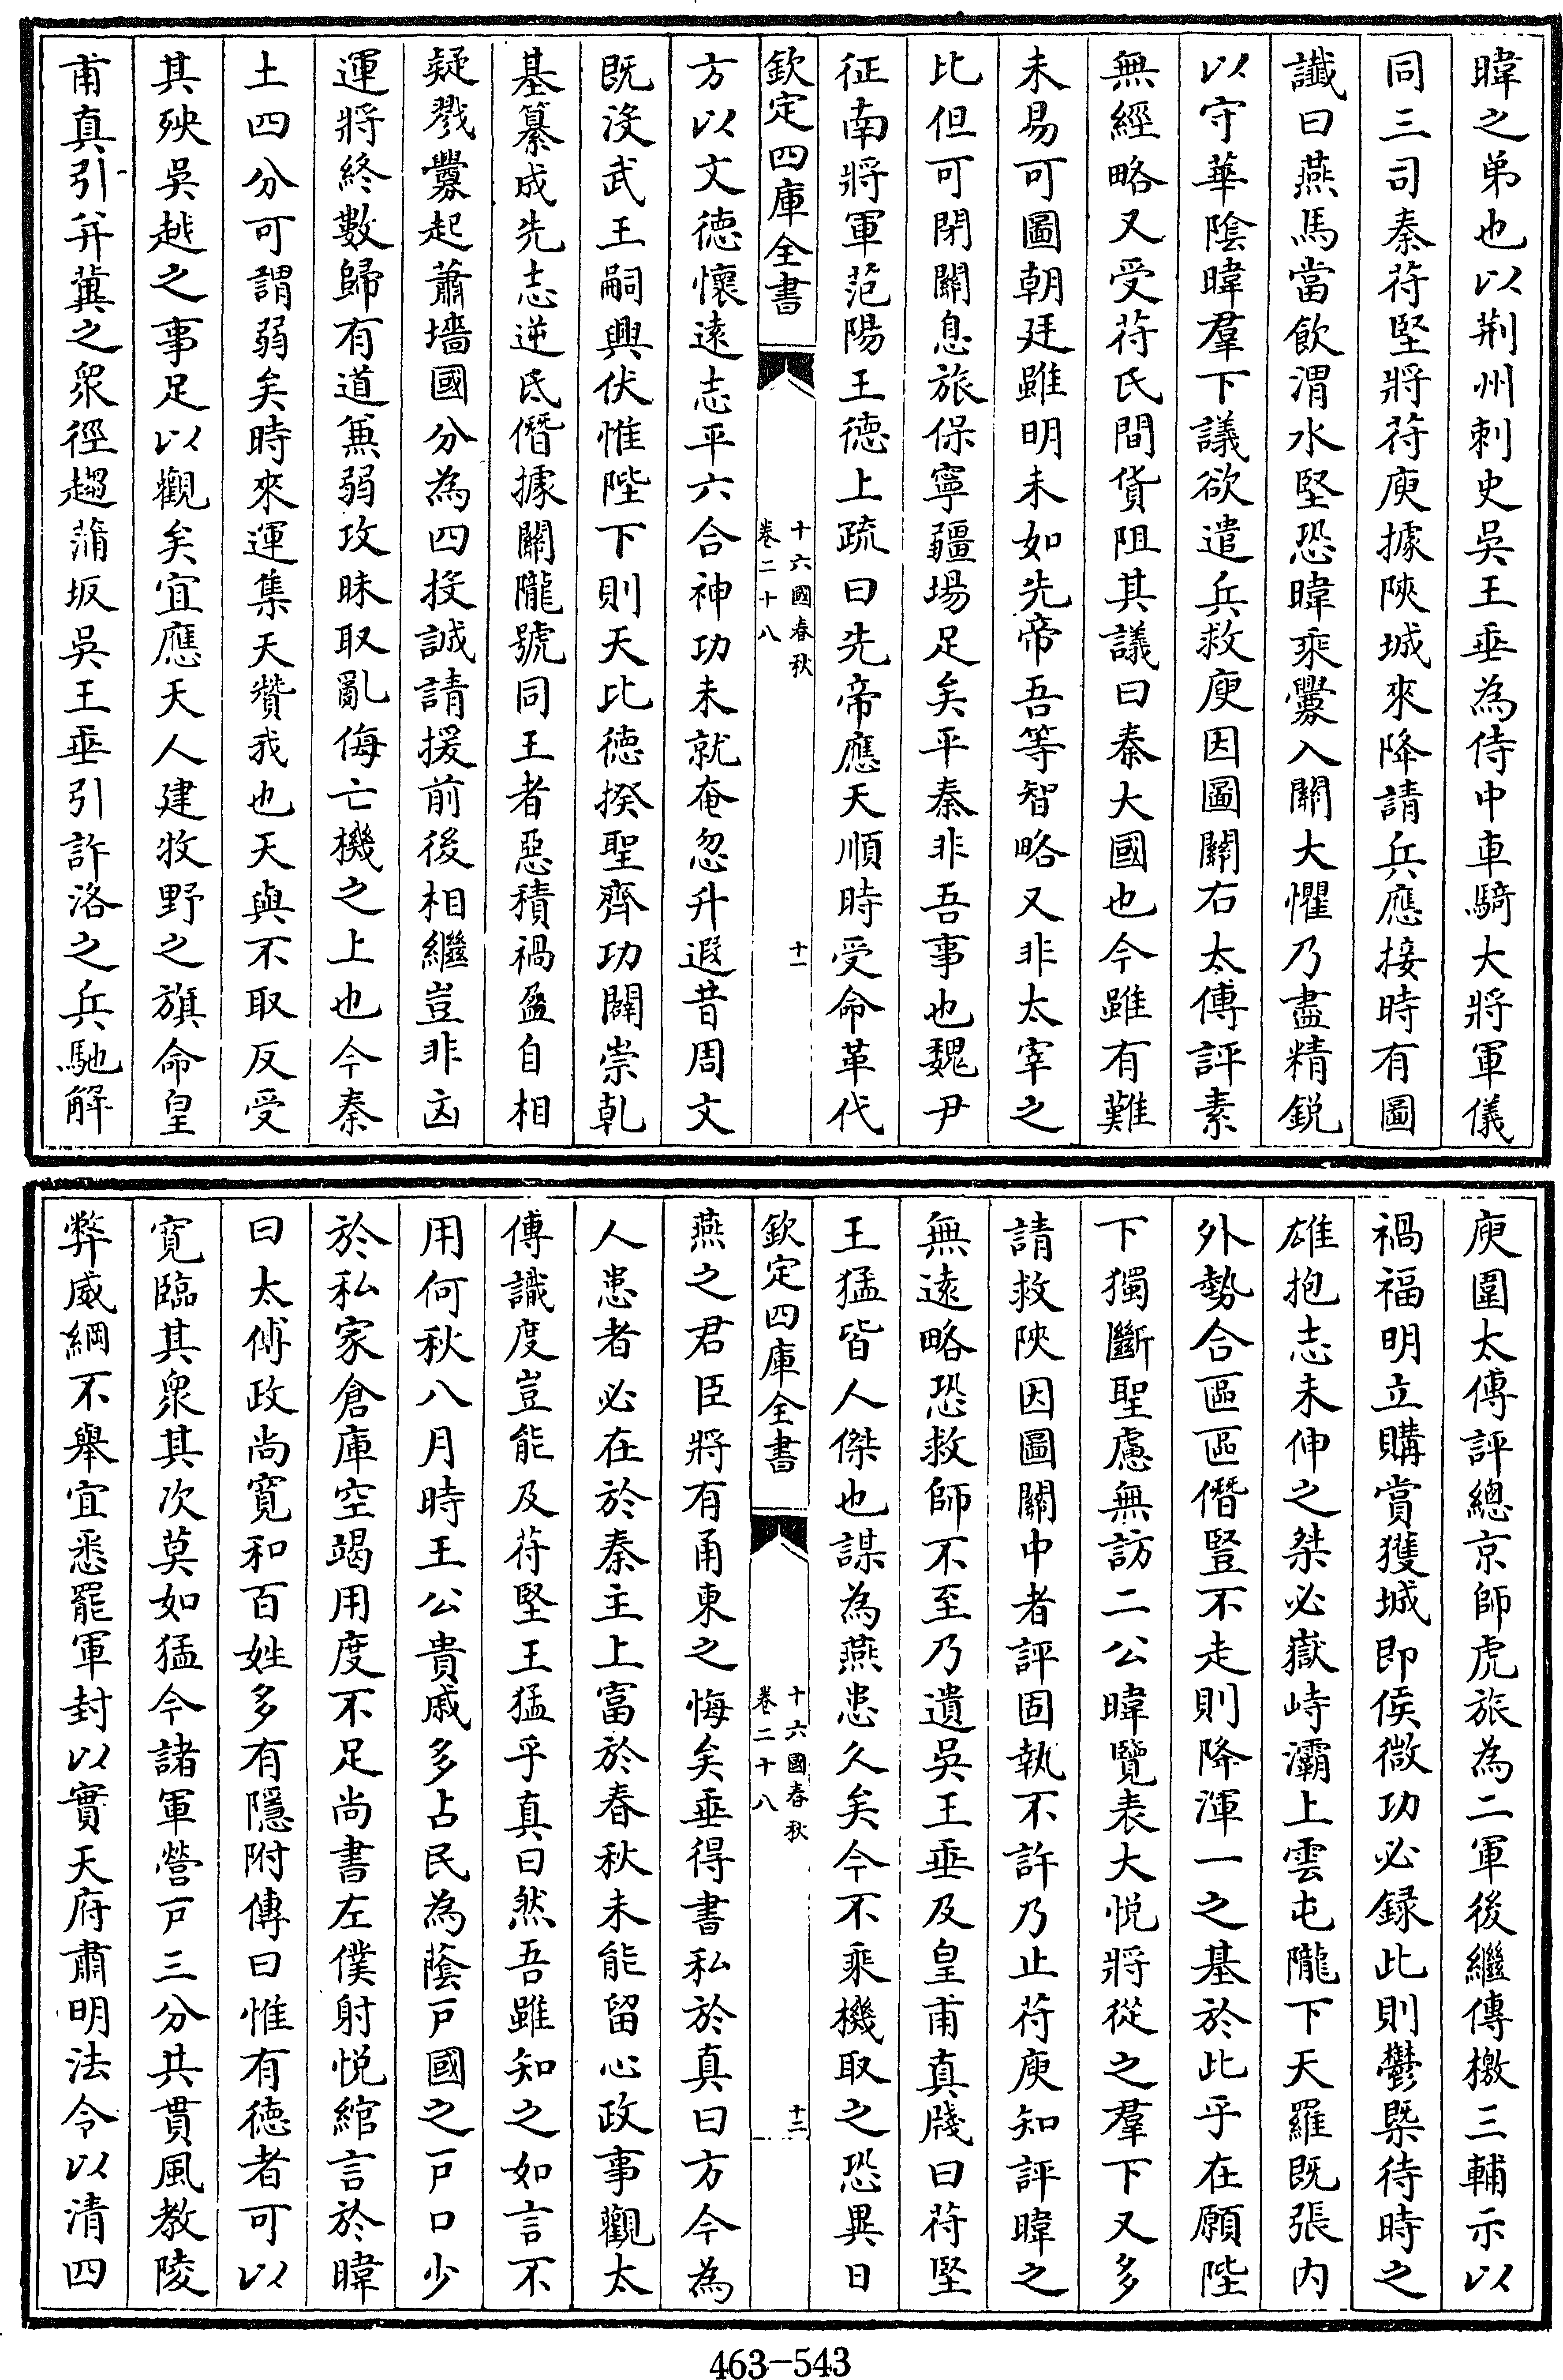 暐之弟也以荆州刺史吳王垂為侍中車騎大將軍儀
同三司秦苻堅將苻庾據陜城來降請兵應接時有圖
讖曰燕馬當飲渭水堅恐暐乘釁入關大懼乃盡精鋭
以守華陰暐羣下議欲遣兵救庾因圖關右太傅評素
無經略又受苻氏間貨阻其議曰秦大國也今雖有難
未易可圖朝廷雖明未如先帝吾等智略又非太宰之
比但可閉關息旅保寧疆場足矣平秦非吾事也魏尹
征南將軍范陽王徳上疏曰先帝應天順時受命革代
欽定四庫全書
十六國春秋
卷二十八
十一
方以文徳懷逺志平六合神功未就奄忽升遐昔周文
既沒武王嗣興伏惟陛下則天比徳揆聖齊功闢崇乹
基纂成先志逆氐僭據關隴號同王者惡積禍盈自相
疑戮釁起蕭墻國分為四投誠請援前後相繼豈非凶
運將終數歸有道兼弱攻昧取亂侮亡機之上也今秦
土四分可謂弱矣時來運集天贊我也天與不取反受
其殃吳越之事足以觀矣宜應天人建牧野之旗命皇
甫真引并冀之衆徑趨蒲坂吳王垂引許洛之兵馳解
庾圍太傅評總京師虎旅為二軍後繼傳檄三輔示以
禍福明立購賞獲城即侯微功必録此則鬱槩待時之
雄抱志未伸之桀必嶽峙灞上雲屯隴下天羅既張内
外勢合區區僭豎不走則降渾一之基於此乎在願陛
下獨斷聖慮無訪二公暐覽表大悦將從之羣下又多
請救陜因圖關中者評固執不許乃止苻庾知評暐之
無逺略恐救師不至乃遺吳王垂及皇甫真牋曰苻堅
王猛皆人傑也謀為燕患久矣今不乘機取之恐異日
欽定四庫全書
十六國春秋
卷二十八
十二
燕之君臣將有甬東之悔矣垂得書私於真曰方今為
人患者必在於秦主上富於春秋未能留心政事觀太
傅識度豈能及苻堅王猛乎真曰然吾雖知之如言不
用何秋八月時王公貴戚多占民為蔭户國之户口少
於私家倉庫空竭用度不足尚書左僕射悦綰言於暐
曰太傅政尚寛和百姓多有隱附傳曰惟有徳者可以
寛臨其衆其次莫如猛今諸軍營户三分共貫風教陵
弊威綱不舉宜悉罷軍封以實天府肅明法令以清四
463-543